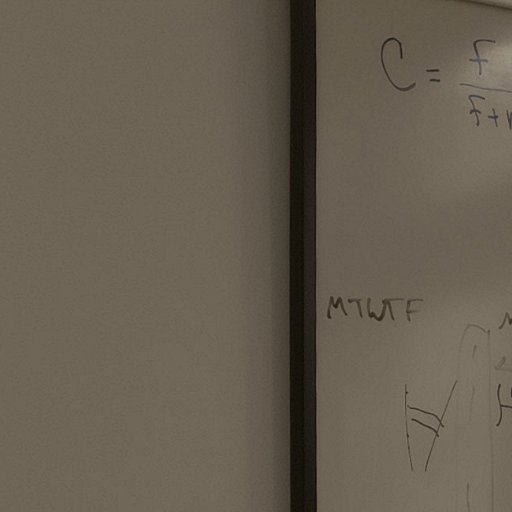 C = F
F+
MTWTF